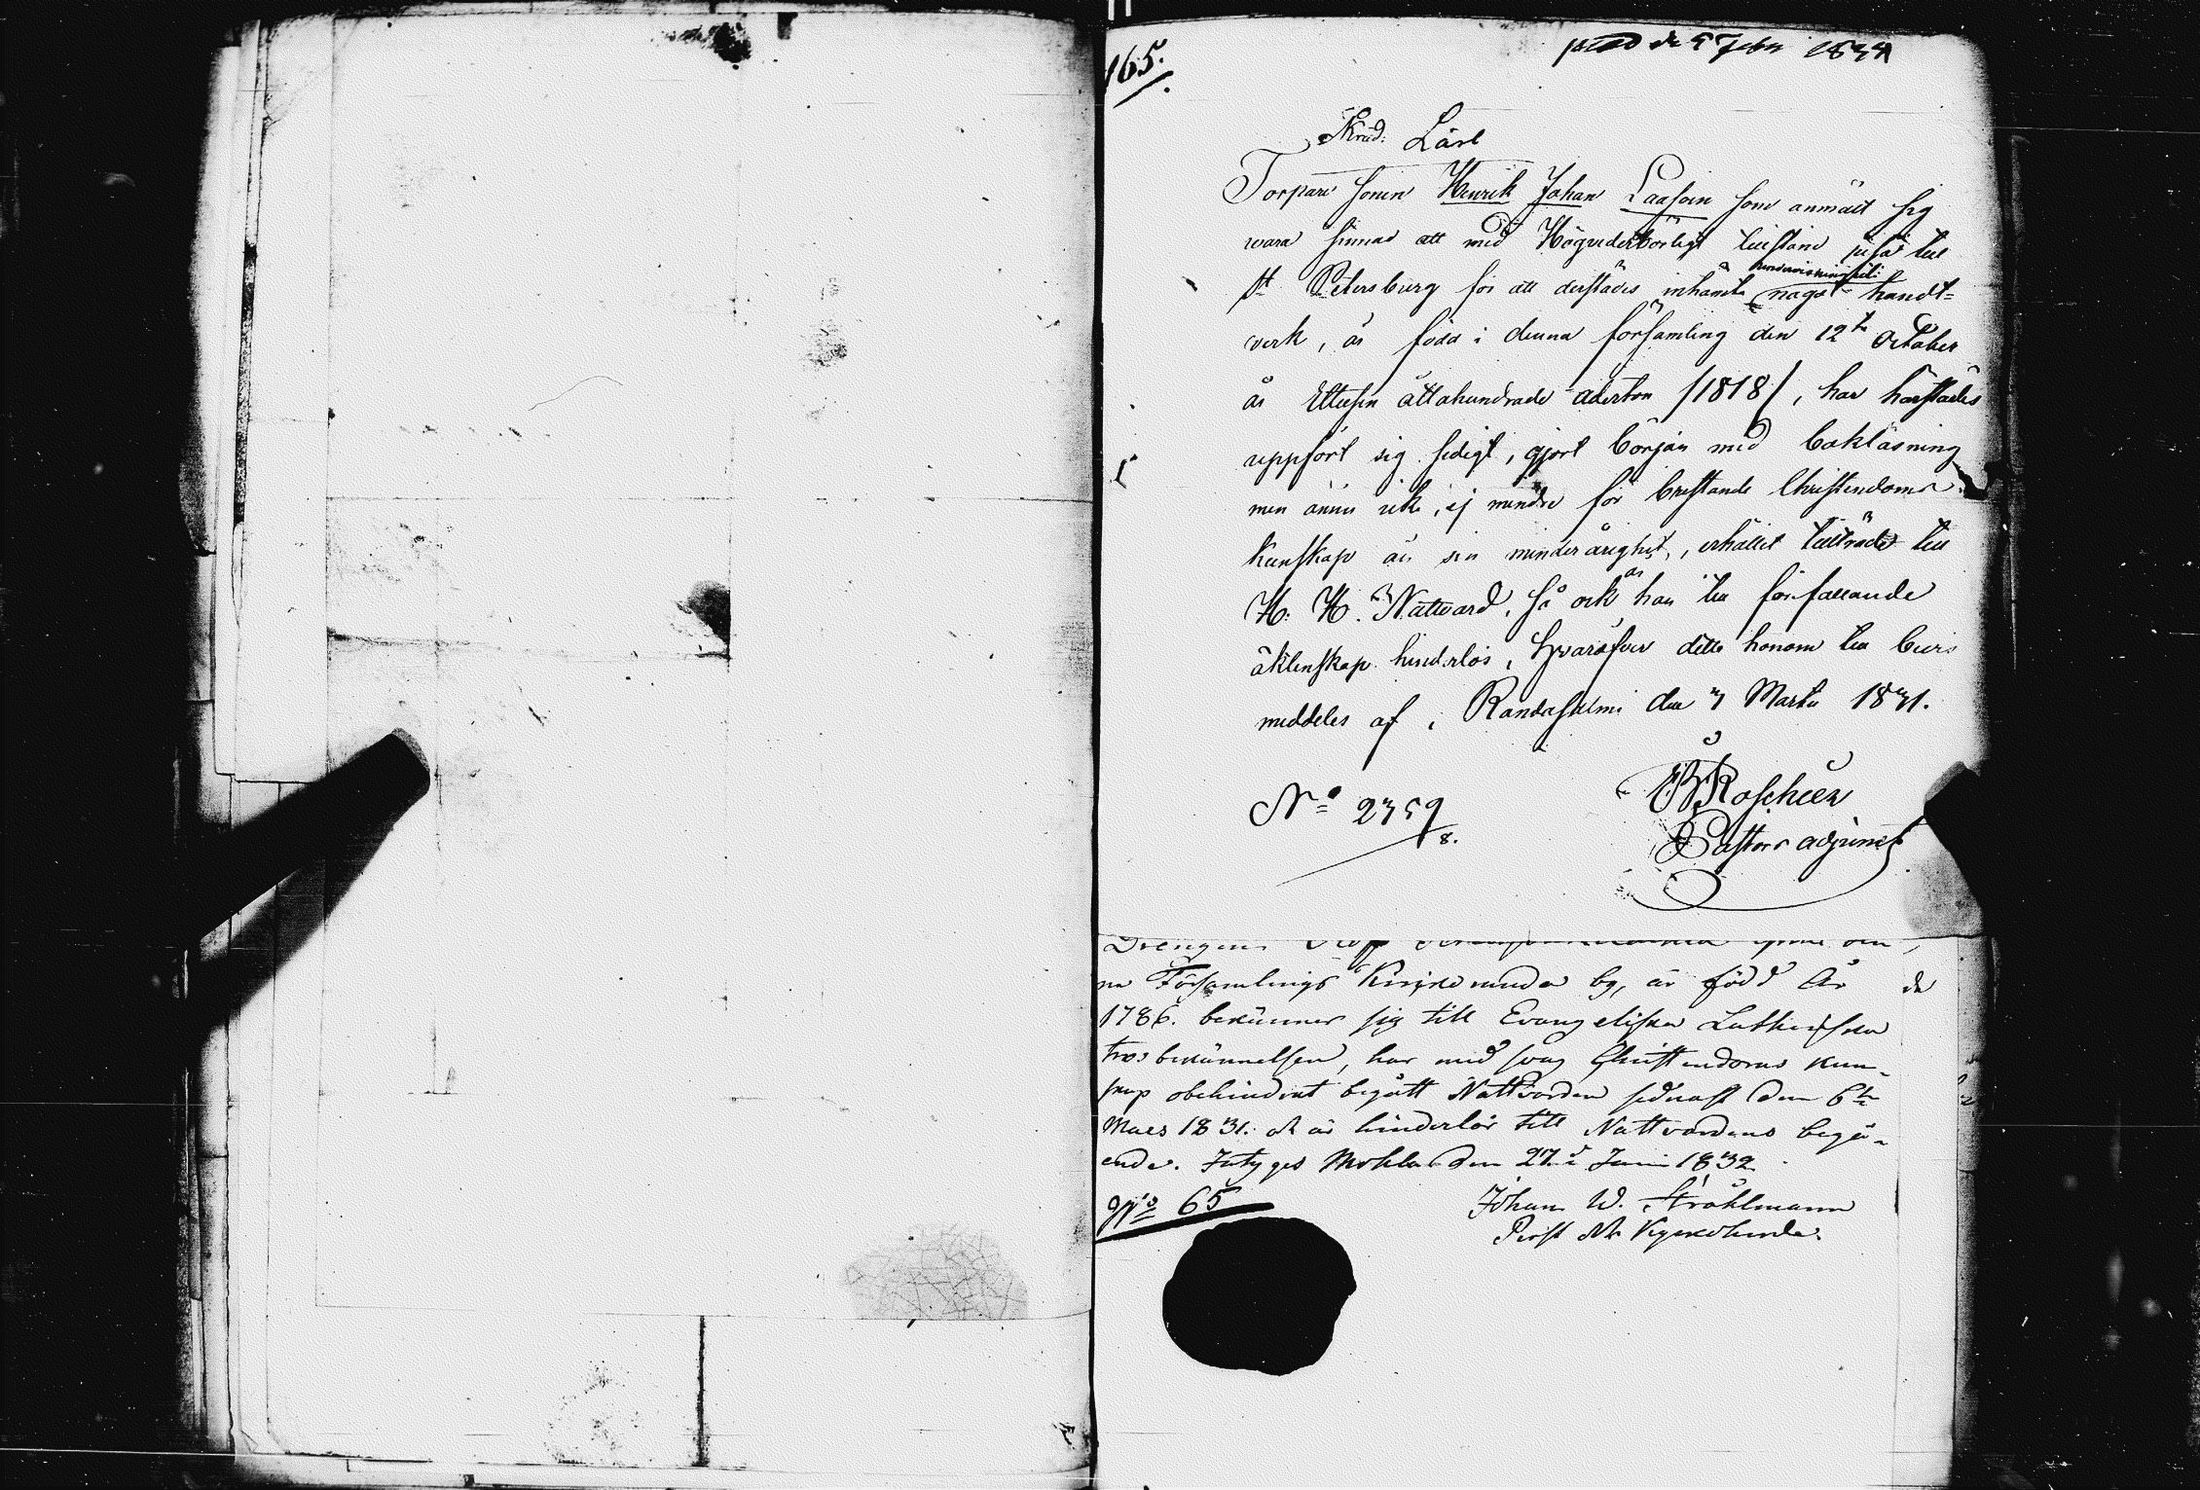 165.
de 5 Febr 1834
Skräd. Lärl
Torpare sonen Henrik Johan Laasoin som anmält sig
wara sinnad att med Högvederbörligt tillstånd resa till
St Petersburg för att derstädes inhämta undervisning uti något handt=
verk, är född i denna församling den 12te October
år Ettusen åttahundrade aderton /1818/, har härstädes
uppfört sig sedigt, gjort början med bokläsning
men ännu icke, ej mindre för bristande Christendoms
kunskap än sin minderårighet, erhållit tillträde till
H. H. Nattvard, så ock är han till förfallande
äktenskap hinderlös, hvaröfver detta honom till bevis
meddeles af i Randasalmi den 3 Martii 1831.
No 2359
8.
Roschier
Pastors adjunct
Drengen
na Församlings by, är född År de
1786. bekänner sig till Evangeliska Lutherska
trosbekännelsen, har med svag Christendoms kun-
skap obehindrat begått Nattvarden sednast den 6te
Mars 1831. ok är hinderlös till Nattvardens begå-
ende. Intygas Mohla den 27de Juni 1832.
No 65
Johan W. Ströhlmann